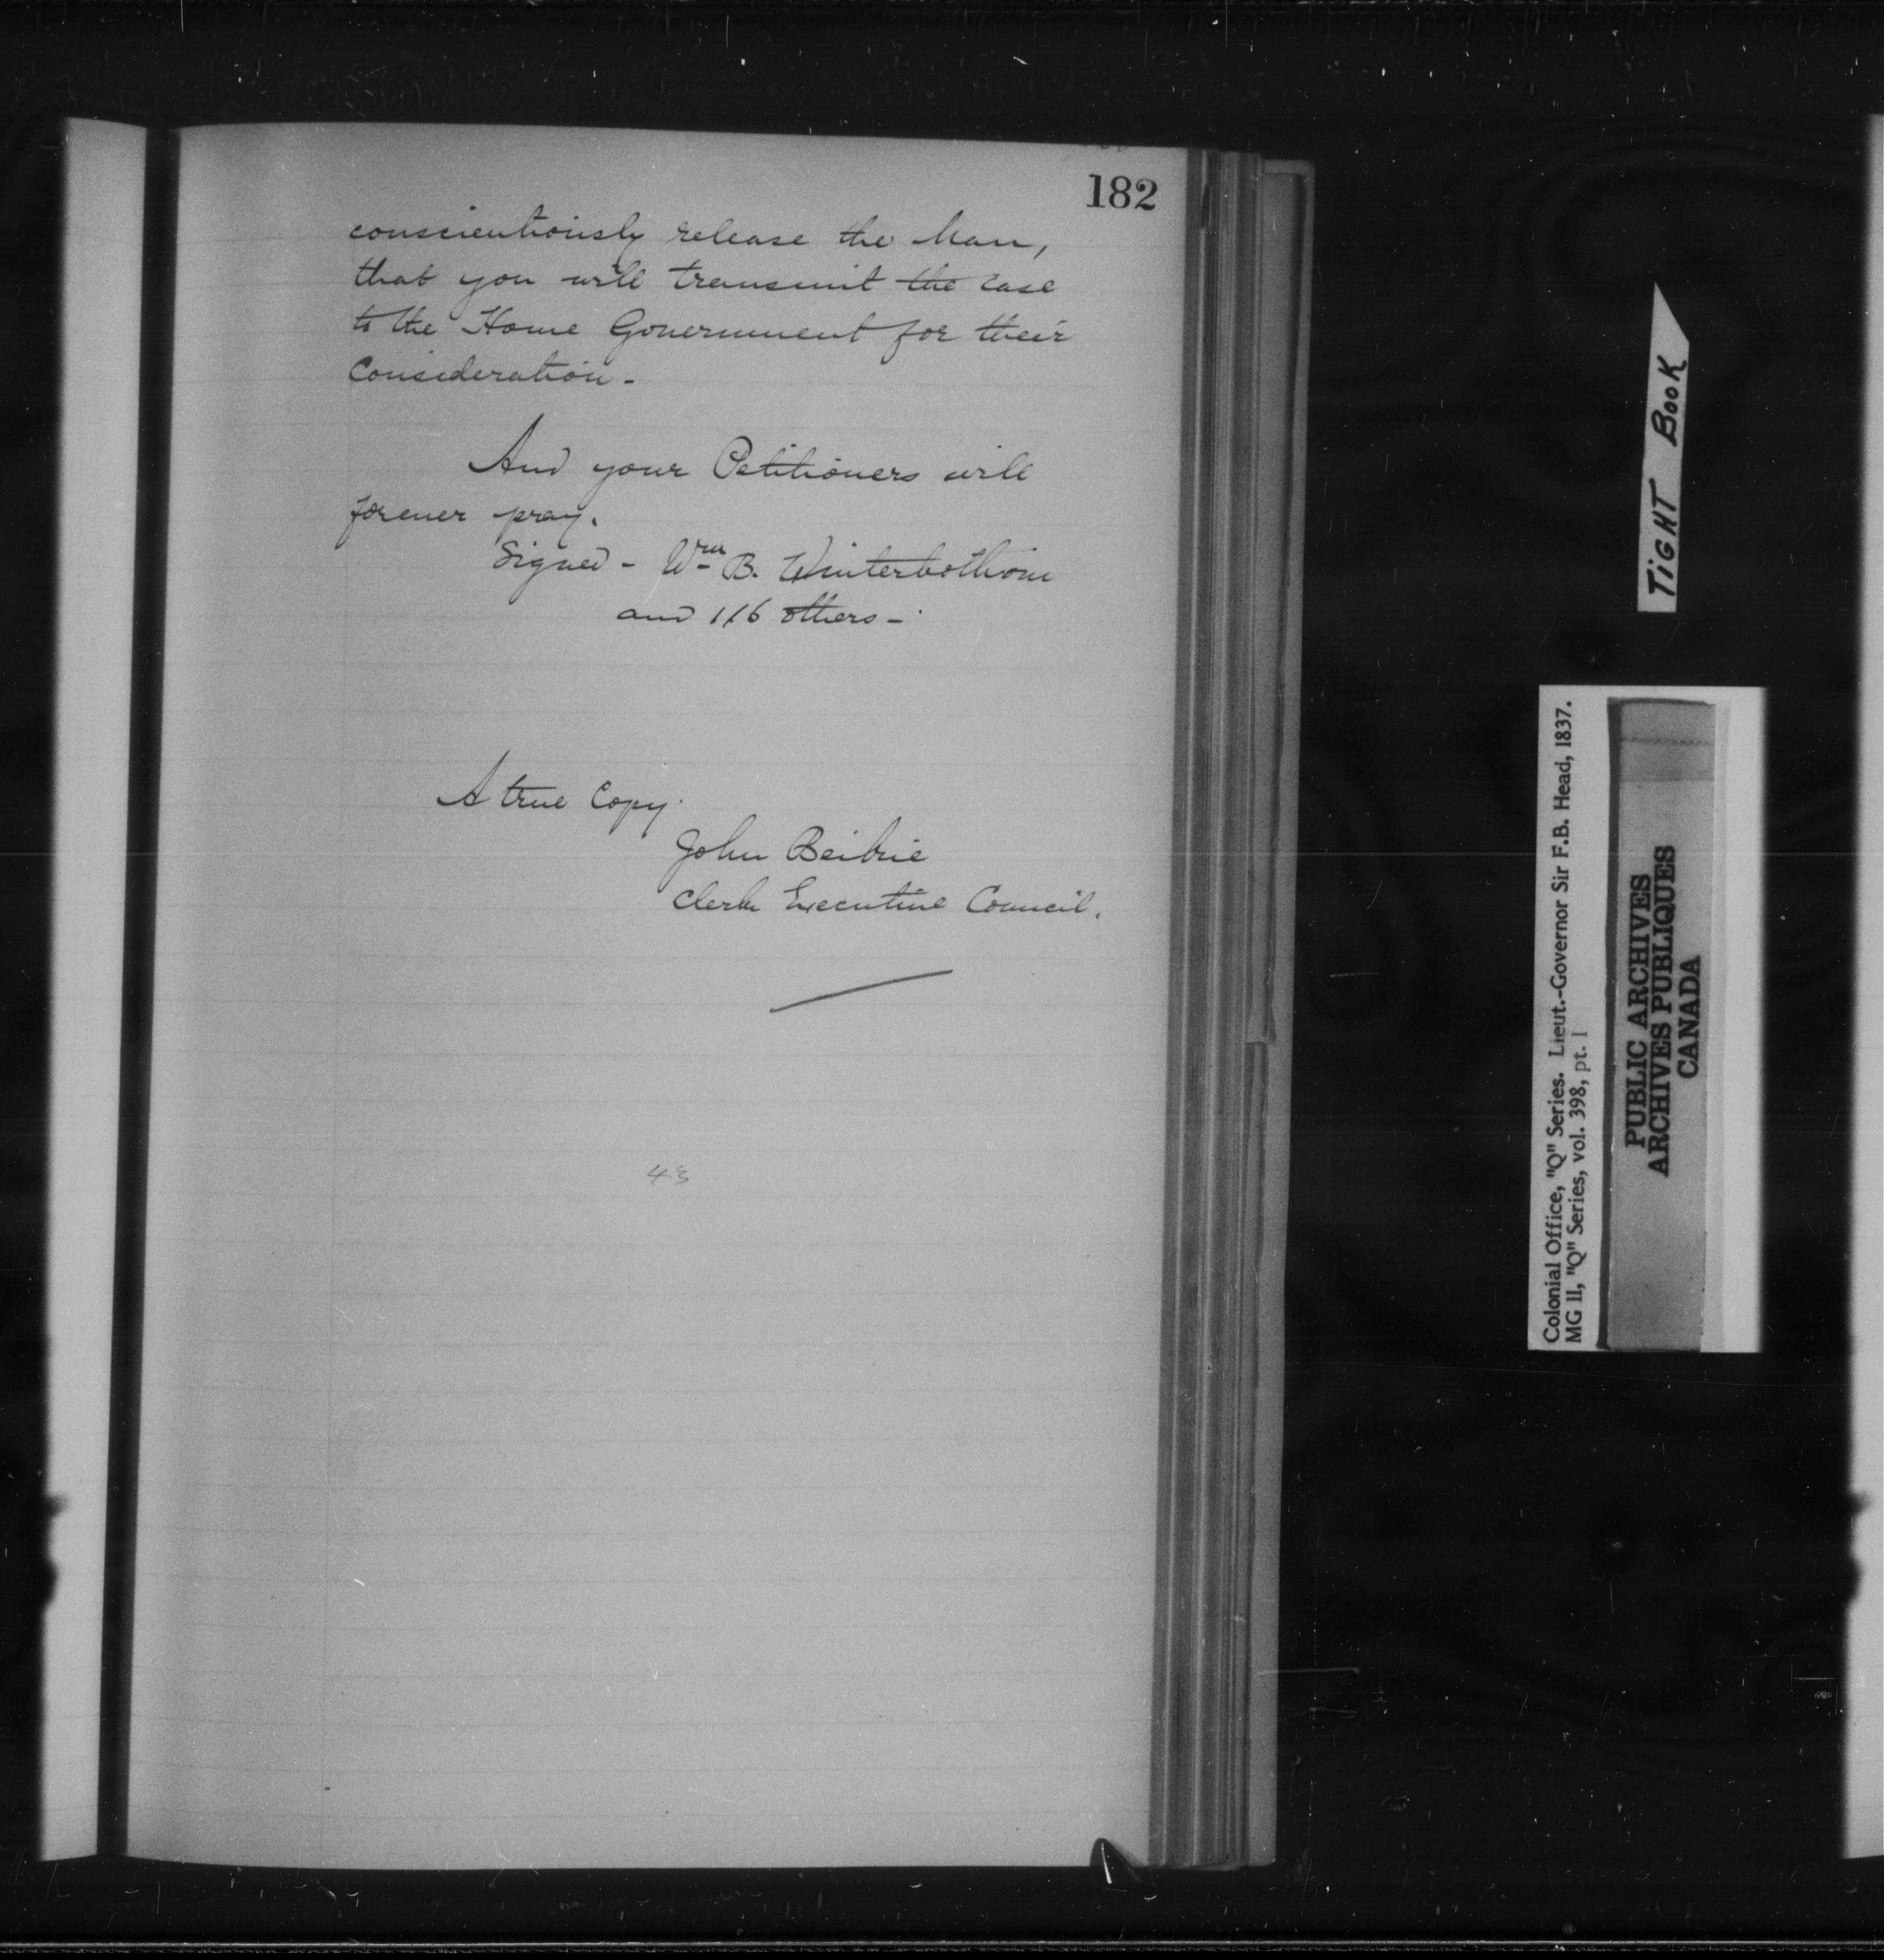 182
conscientiously release the Man,
that you will transmit the case
to the Home Government for their
Consideration -
And your Petitioners will
forever pray.
Signed - Wm B. Winterbothom
and 116 others -
A true Copy.
John Beikie
Clerk Executive Council.
43
TIGHT BOOK
Colonial Office, "Q" Series. Lieut.-Governor Sir F.B. Head, 1837.
MG 11, "Q" Series, vol. 398, pt. 1
PUBLIC ARCHIVES
ARCHIVES PUBLIQUES
CANADA